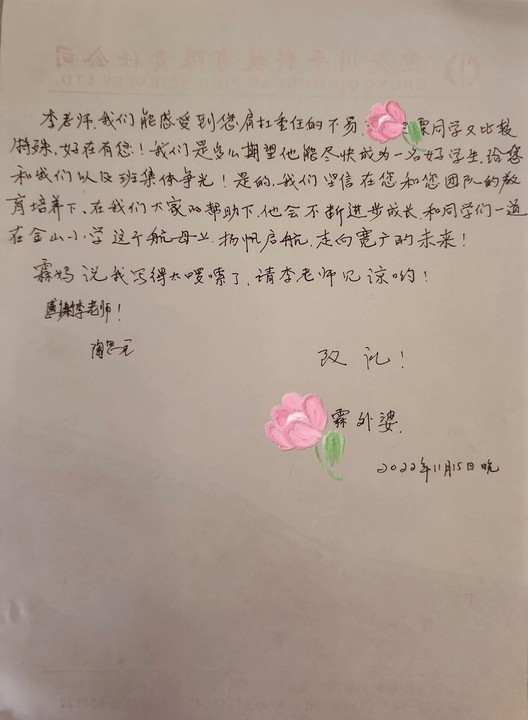 李老师,我们能感受到您肩扛重任的不易,霖同学又比较
特殊,好在有您!我们是多么期望他能尽快成为一名好学生,给您
和我们以及班集体争光!是的,我们坚信在您和您团队的教
育培养下,在我们大家的帮助下,他会不断进步成长,和同学们一道
在金山小学这个航母上,扬帆启航,走向宽广的未来!
霖妈说我写得太啰嗦了,请李老师见谅哟!
感谢李老师!
致礼!
霖外婆
2022年11月15日晚